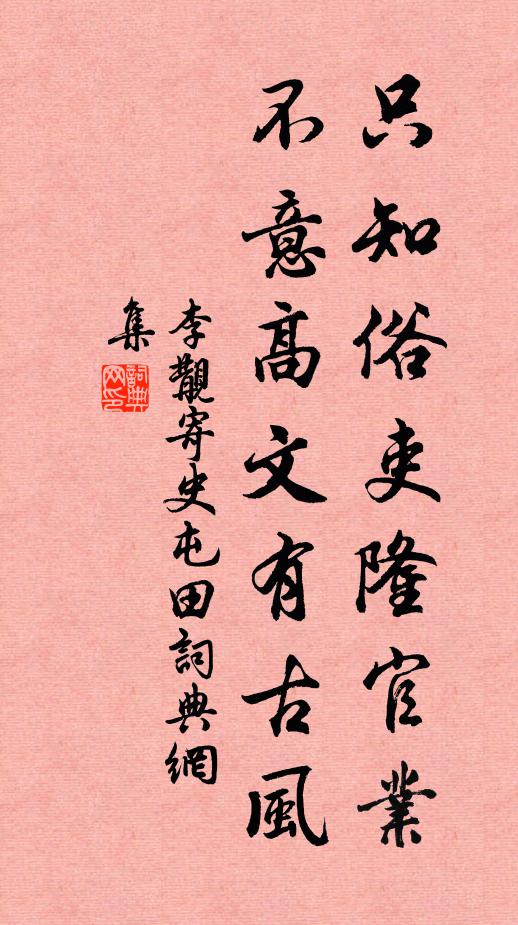 只知俗吏隆官業
不意高文有古風
李覯寄史屯田詞典網
集
詞典
网印